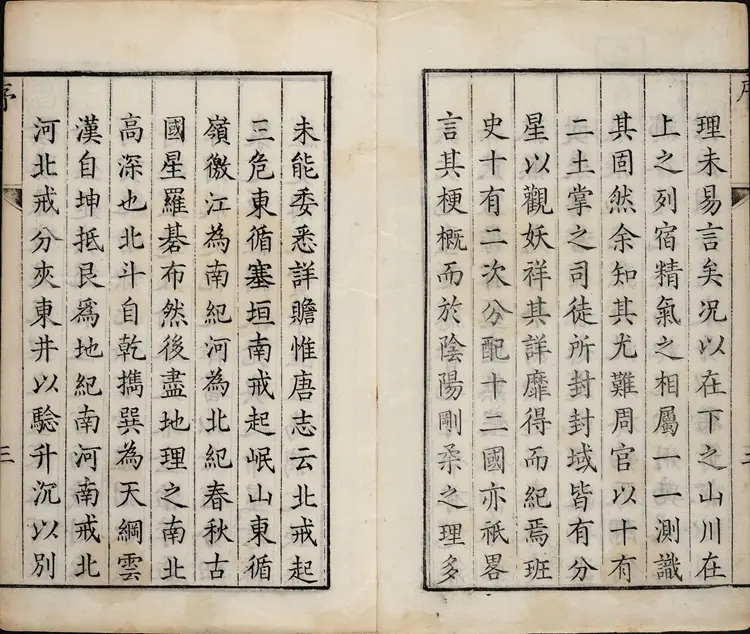 理未易言矣况以在下之山川在
上之列宿精氣之相屬一一測識
其固然余知其尤難周官以十有
二土掌之司徒所封封域皆有分
星以觀妖祥其詳靡得而紀焉班
史十有二次分配十二國亦祇畧
言其梗概而於陰陽剛柔之理多
未能委悉詳贍惟唐志云北戒起
三危東循塞垣南戒起岷山東循
嶺徼江為南紀河為北紀春秋古
國星羅碁布然後盡地理之南北
高深也北斗自乾攜巽為天綱雲
漢自坤抵艮爲地紀南河南戒北
河北戒分夾東井以驗升沉以別
序
三